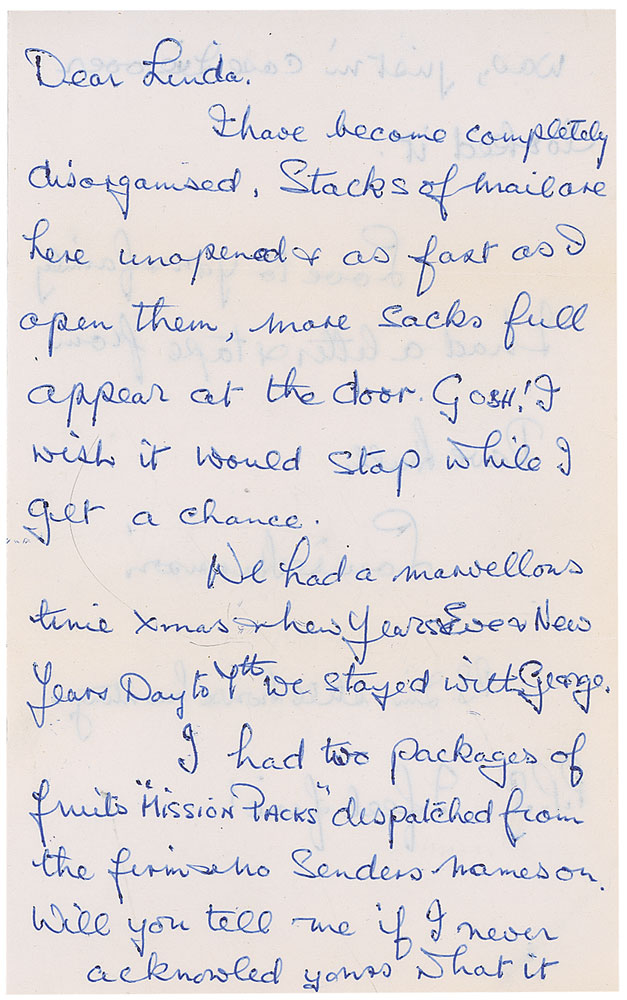 Dear Linda.
I have become completely
disorganised. Stacks of mail are
here unopened & as fast as I
open them, more sacks full
appear at the door. GOSH! I
wish it would stop while I
get a chance.
We had a marvellous
time Xmas & New Years Eve & New
Years Day to 7th we stayed with George.
I had two packages of
fruits "MISSION PACKS" dispatched from
the firms & no Senders names on.
Will you tell me if I never
acknowled yours what it